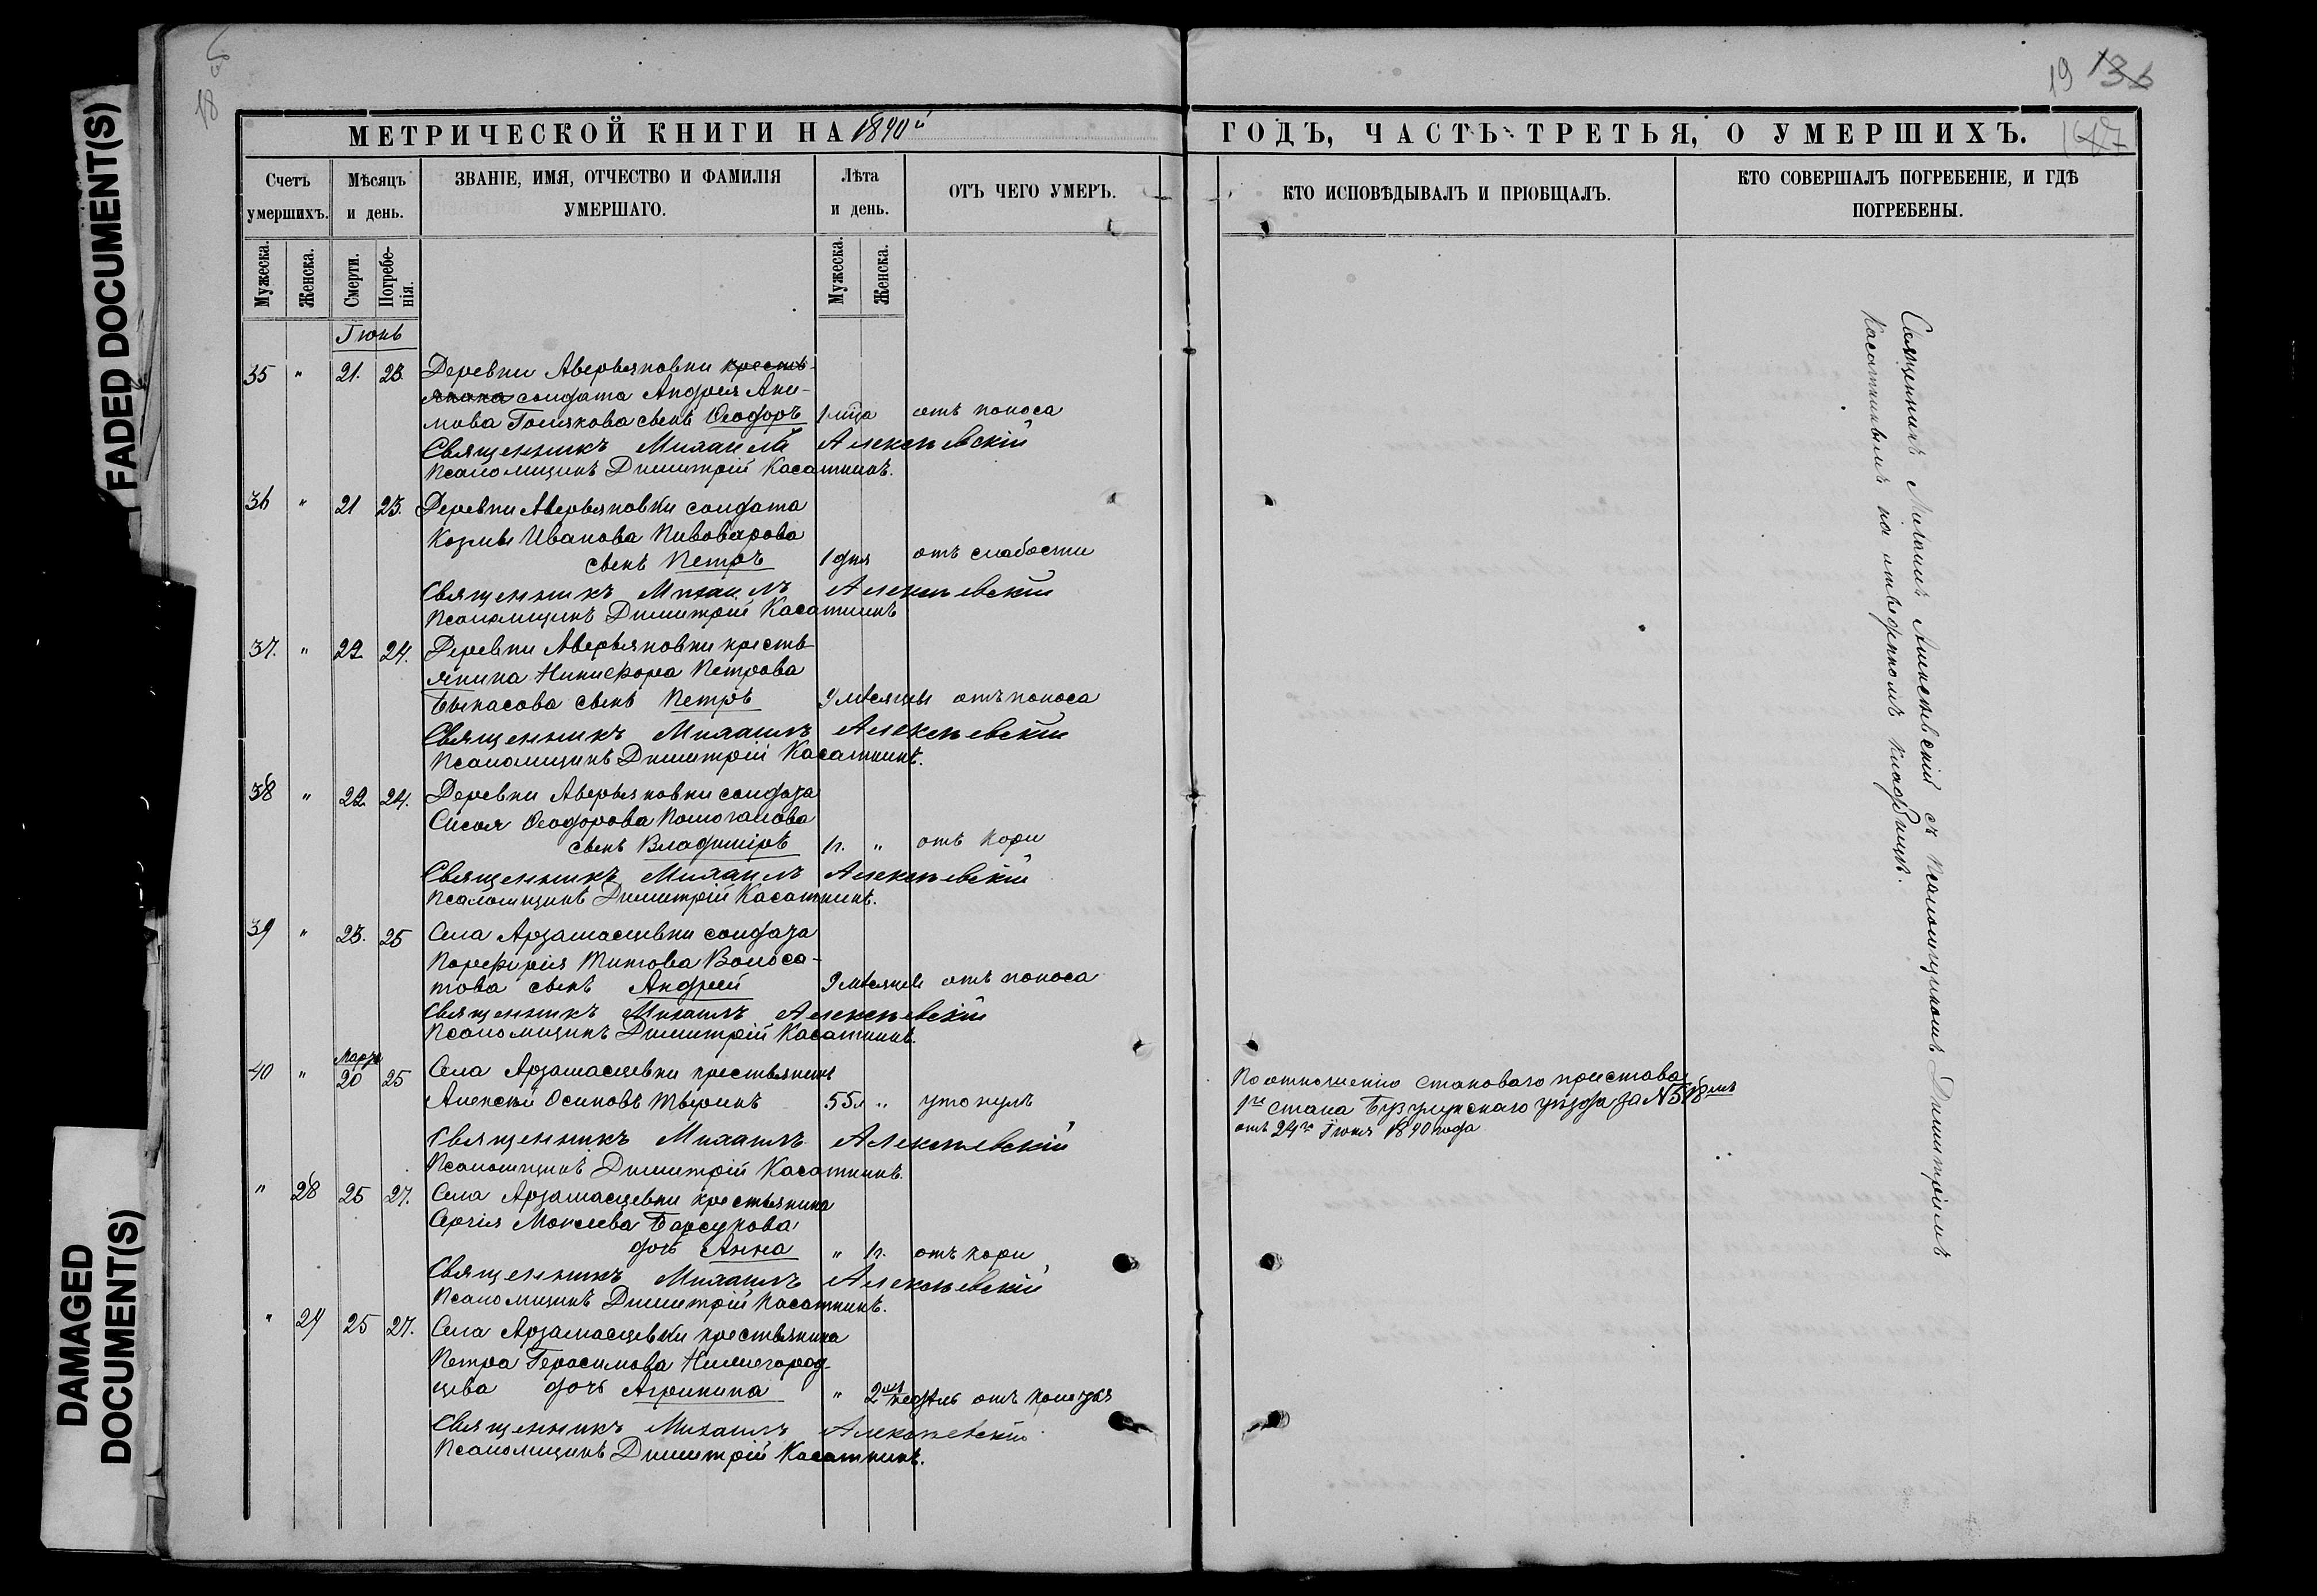 FADED DOCUMENT(S)
DAMAGED
DOCUMENT(S)
18 об
19 136
МЕТРИЧЕСКОЙ КНИГИ НА 1890й
ГОДЪ, ЧАСТЬ ТРЕТЬЯ, О УМЕРШИХЪ.
Счетъ умершихъ.
Мѣсяцъ и день.
ЗВАНІЕ, ИМЯ, ОТЧЕСТВО И ФАМИЛІЯ УМЕРШАГО.
Лѣта и день.
ОТЪ ЧЕГО УМЕРЪ.
КТО ИСПОВѢДЫВАЛЪ И ПРІОБЩАЛЪ.
КТО СОВЕРШАЛЪ ПОГРЕБЕНІЕ, И ГДѢ ПОГРЕБЕНЫ.
Мужеска. Женска. Смерти. Погребенія. Мужеска. Женска.
Іюнь
35 " 21. 23. Деревни Аверьяновки кресть-
янина солдата Андрея Аки-
мова Голякова сынъ Ѳеодоръ 1 мца отъ поноса
Священникъ Михаилъ Алексѣевскій
Псаломщикъ Димитрій Касаткинъ.
36 " 21 23. Деревни Аверьяновки солдата
Козмы Иванова Пивоварова
сынъ Петръ 1 дня отъ слабости
Священникъ Михаилъ Алексѣевскій
Псаломщикъ Димитрій Касаткинъ
37. " 22 24. Деревни Аверьяновки кресть-
янина Никифора Петрова
Быкасова сынъ Петръ 9 мѣсяцы отъ поноса
Священникъ Михаилъ Алексѣевскій
Псаломщикъ Димитрій Касаткинъ.
38 " 22 24. Деревни Аверьяновки солдата
Сисоя Ѳеодорова Помогалова
сынъ Владиміръ 1г. " отъ кори
Священникъ Михаилъ Алексѣевскій
Псаломщикъ Димитрій Касаткинъ.
39 " 23. 25 Села Арзамасцевки солдата
Порфирія Титова Волоса-
това сынъ Андрей 9 мѣсяцевъ отъ поноса
Священникъ Михаилъ Алексѣевскій
Псаломщикъ Димитрій Касаткинъ.
Марта
40 " 20 25 Села Арзамасцевки крестьянинъ
Алексѣй Осиповъ Тверинъ 55л " утонулъ
Священникъ Михаилъ Алексѣевскій
Псаломщикъ Димитрій Касаткинъ.
" 28 25 27. Села Арзамасцевки крестьянина
Сергія Мокеева Барсукова
дочь Анна " 1г. отъ кори
Священникъ Михаилъ Алексѣевскій
Псаломщикъ Димитрій Касаткинъ.
" 29 25 27. Села Арзамасцевки крестьянина
Петра Герасимова Нижегород-
цева дочь Агрипина " 2хъ недѣль отъ
Священникъ Михаилъ Алексѣевскій
Псаломщикъ Димитрій Касаткинъ.
По отношенію становаго пристава
1го стана Бузулукскаго уѣзда за №518мъ
отъ 24го Іюня 1890 года
Священникъ Михаилъ Алексѣевскій съ Псаломщикомъ Димитріемъ
Касаткинымъ на отведенномъ кладбищѣ.